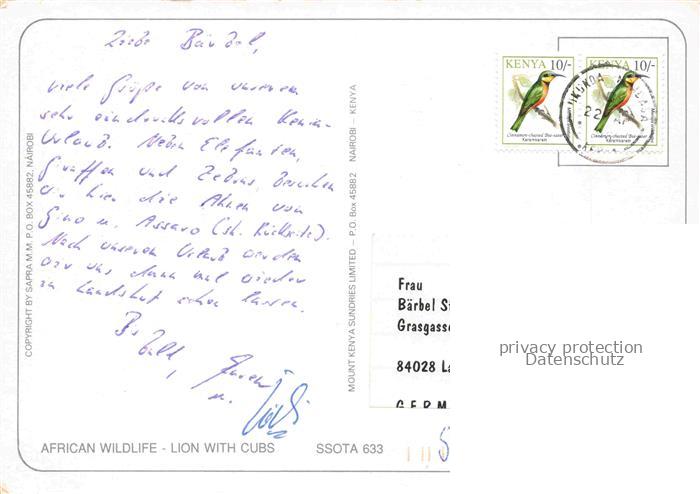 Liebe Bärbel,
viele Grüße von unserem
sehr eindrucksvollen Kenia-
Urlaub. Neben Elefanten,
Giraffen und Zebras, besuchen
wir hier die Ahnen von
Gino u. Assaro (sh. Rückseite).
Nach unserem Urlaub werden
wir uns dann mal wieder
in Landshut sehen lassen.
Bis bald,
u.
COPYRIGHT BY SAPRA M.M. P.O. BOX 45882, NAIROBI
MOUNT KENYA SUNDRIES LIMITED — P.O. Box 45882 NAIROBI — KENYA
KENYA 10/-
Cinnamon-chested Bee-eater
KENYA 10/-
Cinnamon-chested Bee-eater
UKUNDA
22
Frau
Bärbel St
Grasgasse
84028 La
GERM
privacy protection
Datenschutz
AFRICAN WILDLIFE - LION WITH CUBS SSOTA 633
5